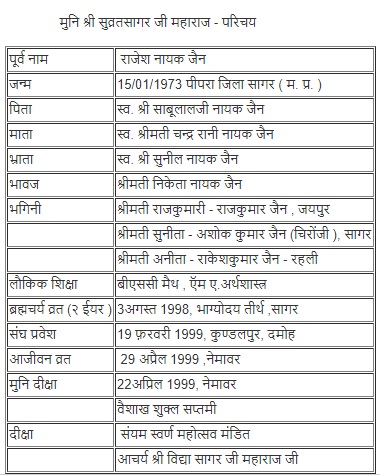 मुनि श्री सुव्रतसागर जी महाराज - परिचय
पूर्व नाम राजेश नायक जैन
जन्म 15/01/1973 पीपरा जिला सागर ( म. प्र. )
पिता स्व. श्री साबूलालजी नायक जैन
माता स्व. श्रीमती चन्द्र रानी नायक जैन
भ्राता स्व. श्री सुनील नायक जैन
भावज श्रीमती निकेता नायक जैन
भगिनी श्रीमती राजकुमारी - राजकुमार जैन , जयपुर
श्रीमती सुनीता - अशोक कुमार जैन (चिरोंजी ), सागर
श्रीमती अनीता - राकेशकुमार जैन - रहली
लौकिक शिक्षा बीएससी मैथ , ऍम ए.अर्थशास्त्र
ब्रह्मचर्य व्रत (२ ईयर ) 3अगस्त 1998, भाग्योदय तीर्थ ,सागर
संघ प्रवेश 19 फ़रवरी 1999, कुण्डलपुर, दमोह
आजीवन व्रत 29 अप्रैल 1999 ,नेमावर
मुनि दीक्षा 22अप्रिल 1999, नेमावर
वैशाख शुक्ल सप्तमी
दीक्षा संयम स्वर्ण महोत्सव मंडित
आचार्य श्री विद्या सागर जी महाराज जी